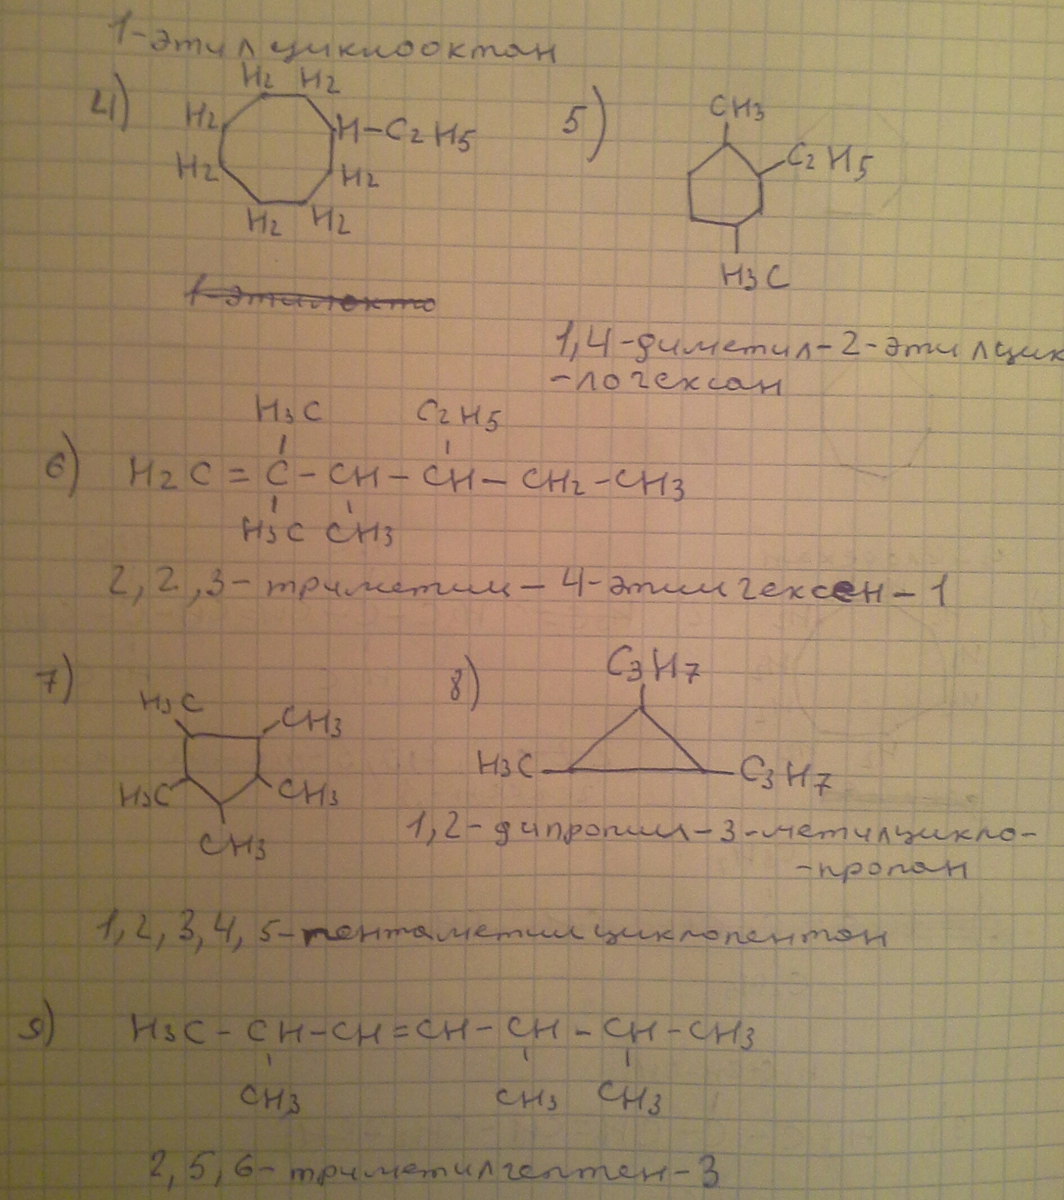 1-этилциклооктан
4)
H2 H2
H2 H-C2H5
H2 H2
H2 H2
5)
CH3
C2H5
H3C
1,4-диметил-2-этилцик
-логексан
6)
H3C C2H5
H2C=C-CH-CH-CH2-CH3
H3C CH3
2,2,3-триметил-4-этилгексен-1
7)
H3C CH3
H3C CH3
CH3
1,2,3,4,5-пентаметилциклопентан
8)
C3H7
H3C C3H7
1,2-дипропил-3-метилцикло-
-пропан
9)
H3C-CH-CH=CH-CH-CH-CH3
CH3 CH3 CH3
2,5,6-триметилгептен-3